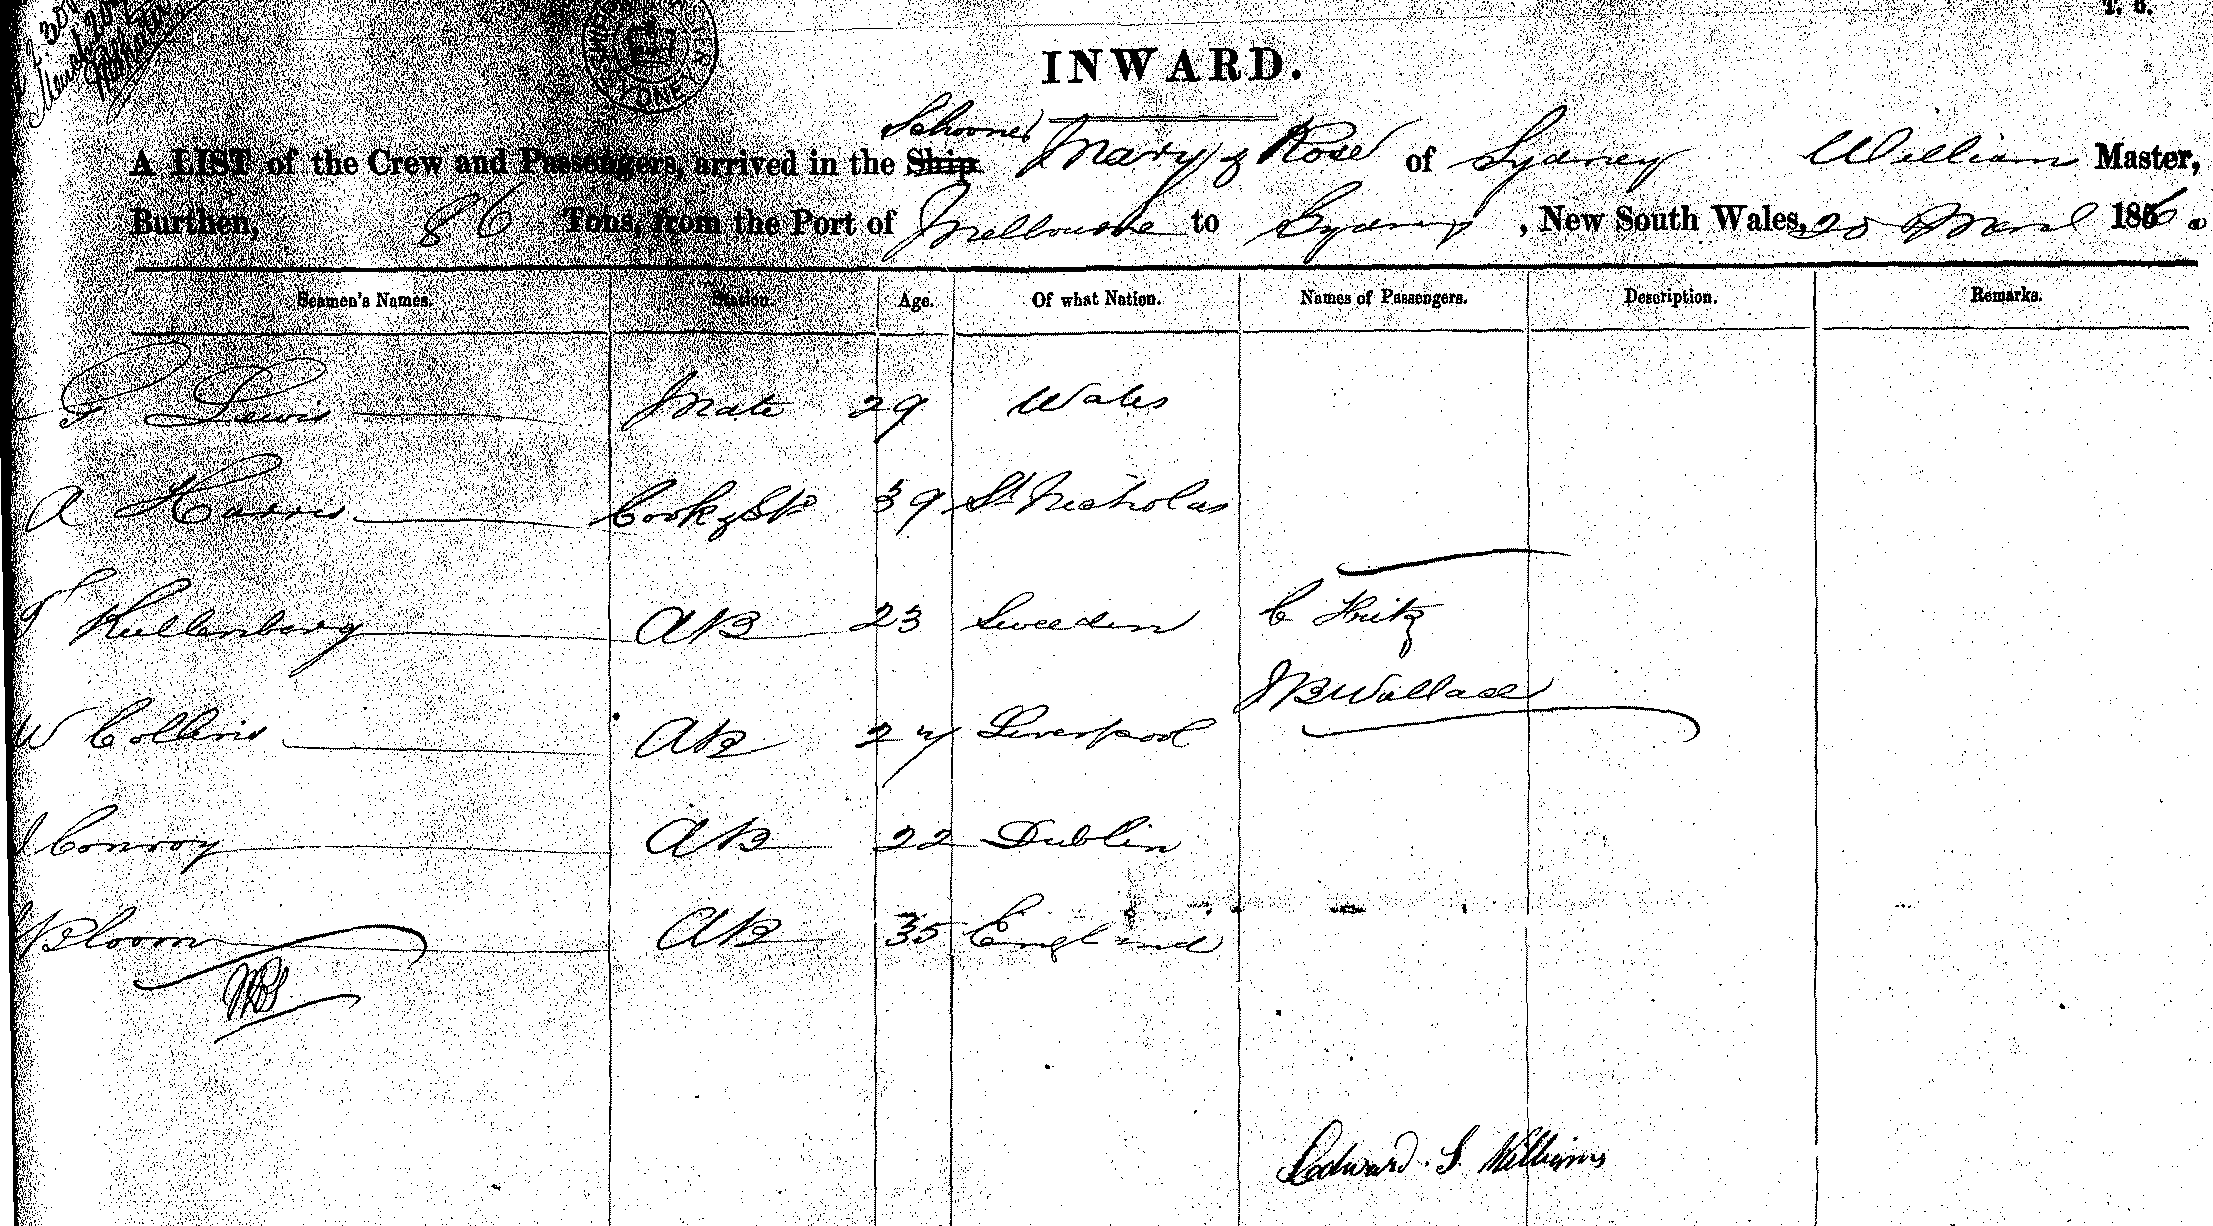 T. 6.
INWARD.
Schooner
A LIST of the Crew and Passengers, arrived in the Ship Mary & Rose of Sydney William Master,
Burthen, 86 Tons, from the Port of Melbourne to Sydney, New South Wales, 20 March 1856.
Seamen's Names. Station. Age. Of what Nation. Names of Passengers. Description. Remarks.
G Lewis Mate 29 Wales
A Harris Cook & St 39 St Nicholas
Kullenberg AB 23 Sweden C Fritz
J B Wallace
W Collins AB 27 Liverpool
J Conroy AB 22 Dublin
Bloom AB 35 England
Edward S. Williams